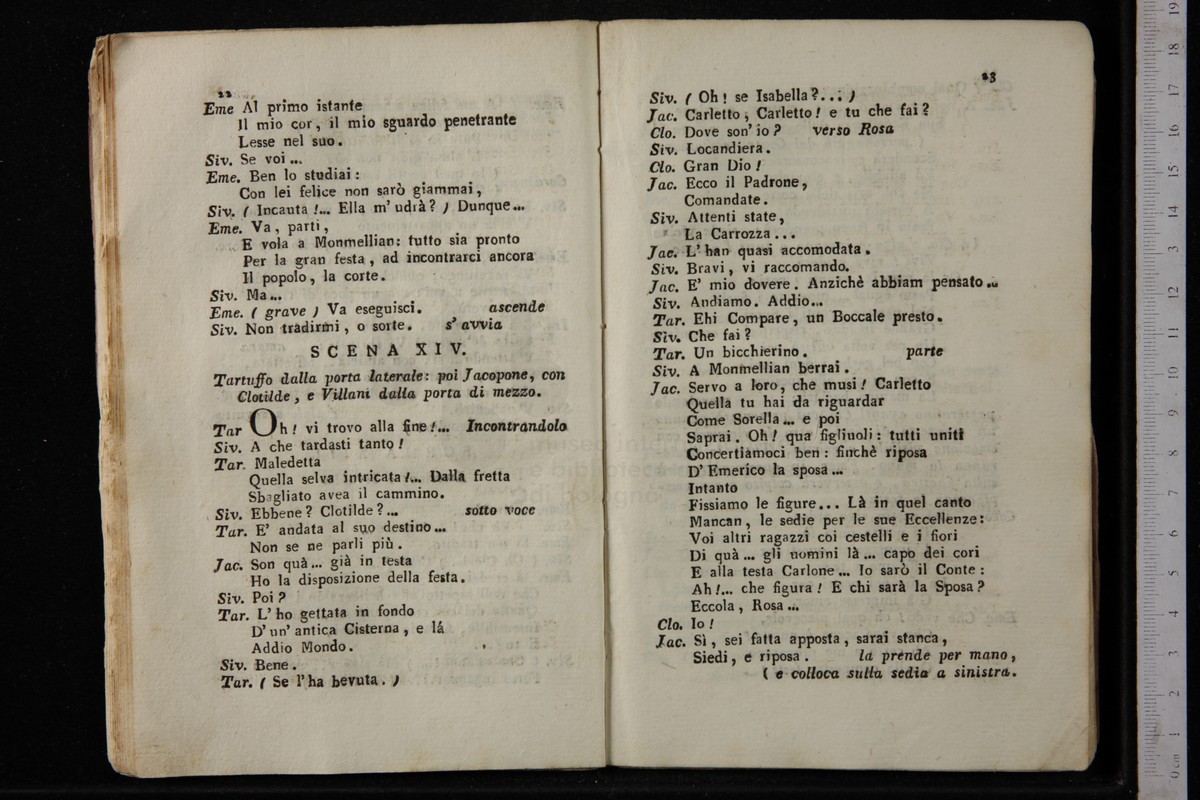 22
Eme Al primo istante
Il mio cor, il mio sguardo penetrante
Lesse nel suo.
Siv. Se voi...
Eme. Ben lo studiai:
Con lei felice non sarò giammai,
Siv. ( Incauta!... Ella m'udrà? ) Dunque...
Eme. Va, parti,
E vola a Monmellian: tutto sia pronto
Per la gran festa, ad incontrarci ancora
Il popolo, la corte.
Siv. Ma...
Eme. ( grave ) Va eseguisci. ascende
Siv. Non tradirmi, o sorte. s' avvia
SCENA XIV.
Tartuffo dalla porta laterale: poi Jacopone, con
Clotilde, e Villani dalla porta di mezzo.
Tar Oh! vi trovo alla fine!... Incontrandolo
Siv. A che tardasti tanto!
Tar. Maledetta
Quella selva intricata!... Dalla fretta
Sbagliato avea il cammino.
Siv. Ebbene? Clotilde?... sotto voce
Tar. E' andata al suo destino...
Non se ne parli più.
Jac. Son quà... già in testa
Ho la disposizione della festa.
Siv. Poi?
Tar. L'ho gettata in fondo
D'un' antica Cisterna, e lá
Addio Mondo.
Siv. Bene.
Tar. ( Se l'ha bevuta. )
23
Siv. ( Oh! se Isabella?... )
Jac. Carletto, Carletto! e tu che fai?
Clo. Dove son' io? verso Rosa
Siv. Locandiera.
Clo. Gran Dio!
Jac. Ecco il Padrone,
Comandate.
Siv. Attenti state,
La Carrozza...
Jac. L'han quasi accomodata.
Siv. Bravi, vi raccomando.
Jac. E' mio dovere. Anzichè abbiam pensato..
Siv. Andiamo. Addio...
Tar. Ehi Compare, un Boccale presto.
Siv. Che fai?
Tar. Un bicchierino. parte
Siv. A Monmellian berrai.
Jac. Servo a loro, che musi! Carletto
Quella tu hai da riguardar
Come Sorella... e poi
Saprai. Oh! qua figliuoli: tutti uniti
Concertiamoci ben: finchè riposa
D'Emerico la sposa...
Intanto
Fissiamo le figure... Là in quel canto
Mancan, le sedie per le sue Eccellenze:
Voi altri ragazzi coi cestelli e i fiori
Di quà... gli uomini là... capo dei cori
E alla testa Carlone... Io sarò il Conte:
Ah!... che figura! E chi sarà la Sposa?
Eccola, Rosa...
Clo. Io!
Jac. Sì, sei fatta apposta, sarai stanca,
Siedi, e riposa. la prende per mano,
( e colloca sulla sedia a sinistra.